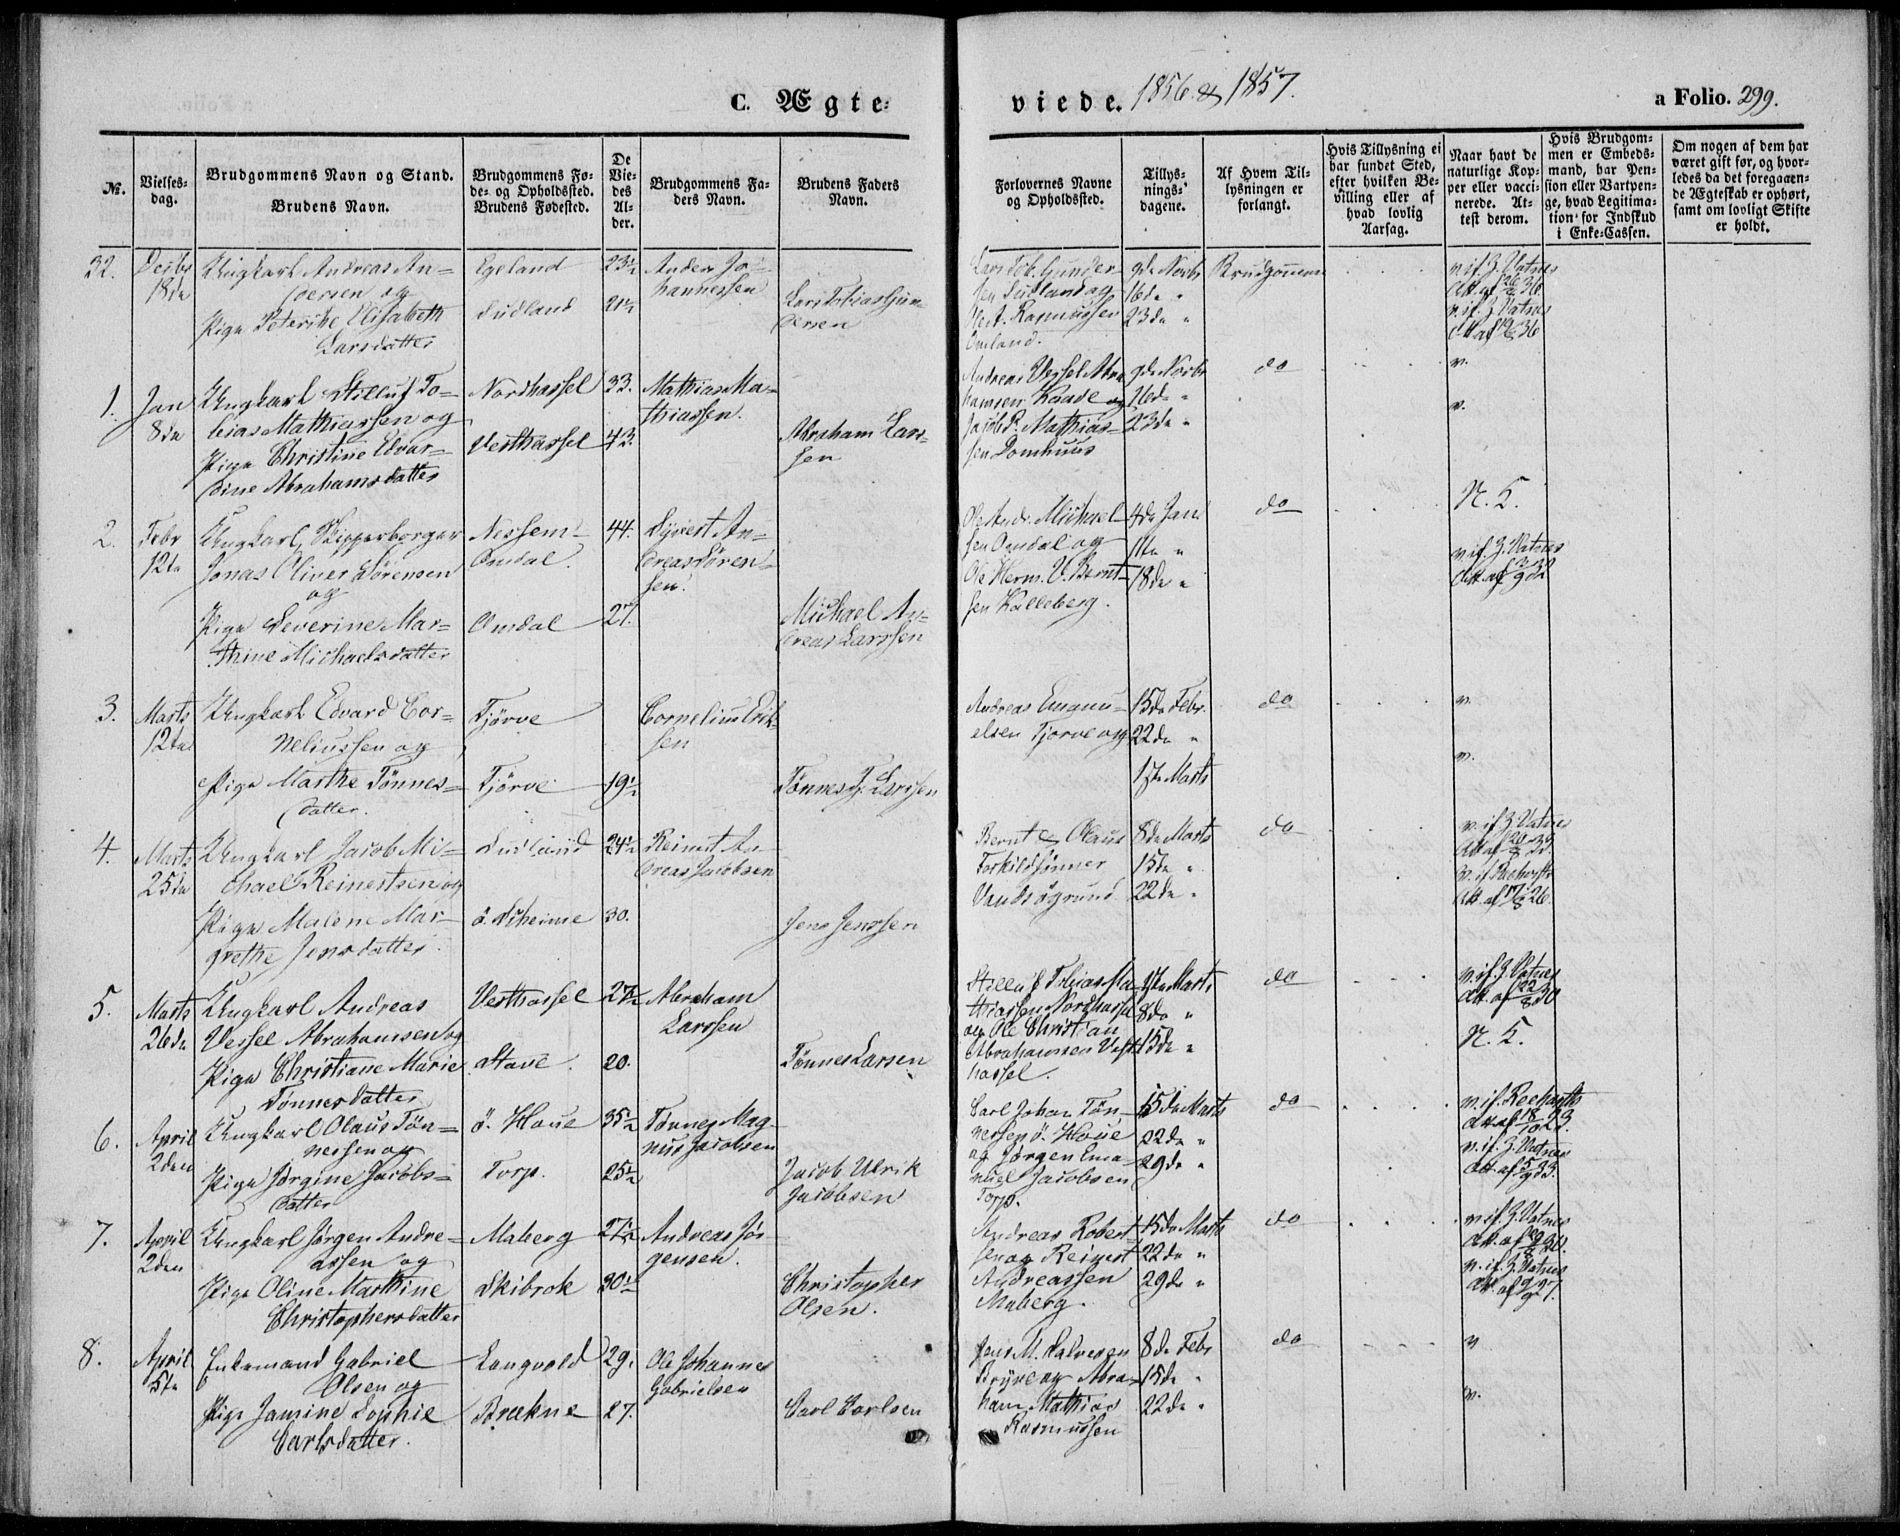 C. Ægte-
viede. 1856 & 1857.
a Folio. 299.
No.
Vielses-
dag.
Brudgommens Navn og Stand.
Brudens Navn.
Brudgommens Fø-
de- og Opholdssted.
Brudens Fødested.
De
Vie-
des
Al-
der.
Brudgommens Fa-
ders Navn.
Brudens Faders
Navn.
Forlovernes Navne
og Opholdssted.
Tillys-
nings-
dagene.
Af Hvem Til-
lysningen er
forlangt.
Hvis Tillysning ei
har fundet Sted,
efter hvilken Be-
villing eller af
hvad lovlig
Aarsag.
Naar havt de
naturlige Kop-
per eller vacci-
nerede. At-
test derom.
Hvis Brudgom-
men er Embeds-
mand, har Pen-
sion eller Vartpen-
ge, hvad Legitima-
tion for Indskud
i Enke-Cassen.
Om nogen af dem har
været gift før, og hvor-
ledes da det foregaaen-
de Ægteskab er ophørt,
samt om lovligt Skifte
er holdt.
32.
Decbr
18de
Ungkarl Andreas An-
dersen og
Pige Peterike Elisabeth
Larsdatter
Egeland
Sudland
23½
21½
Anders Jo-
hannessen
Lars Tobias Gun-
dersen
Lars Tob. Gunder-
sen Sudland og
A. Rasmussen
Omland.
9de Novbr
16de "
23de "
Brudgommen
v. if. Z. Vatnes
v. if. Z. Vatnes
1.
Jan
8de
Ungkarl Stilluf To-
bias Mathiassen og
Pige Christine Edvar-
dine Abrahamsdatter
Nordhassel
Vesthassel
33.
43.
Mathias Ma-
thiassen.
Abraham Lars-
sen
Andreas Vessel Abra
hamsen Kaade og
Jacob R. Mathias-
sen Domhuus
9de Novbr
16de "
23de "
do
v.
v.
2.
Febr
12te
Ungkarl, Skipperborger
Jonas Oliver Sörensen
og
Pige Severine Mar-
thine Michaelsdatter
Nessem-
Omdal.
Omdal
44.
27.
Syvert An-
dreas Sören-
sen.
Michael An-
dreas Larssen
Ole Andr. Michael-
sen Omdal og
Ole Herm. V. Bernt-
sen Kalleberg.
4de Jan
11te "
18de "
do
N. K.
v. if. Z. Vatnes
3.
Marts
12te
Ungkarl Edvard Cor-
neliussen og
Pige Marthe Tönnes-
datter.
Tjörve
Tjörve
19½
Cornelius Erik-
sen
Tönnes T. Larssen
Andreas Emanu-
elsen Tjorve og
15de Febr.
22de "
1ste Marts
do
v.
v.
4.
Marts
25de
Ungkarl Jacob Mi-
chael Reinertsen og
Pige Malene Mar-
grethe Jensdatter.
Sudland
ö. Skeime
24½
30.
Reinert An-
dreas Jacobsen
Jens Jenssen
Bernt & Olaus
Torkildsönner
Vandsögrund
8de Marts
15de "
22de "
do
v. if. Z. Vatnes
5.
Marts
26de
Ungkarl Andreas
Vessel Abrahamsen og
Pige Christiane Marie
Tönnesdatter
Vesthassel
Stave.
27½
20.
Abraham
Larssen
Tönnes Larsen
Stilluf Tobias Ma-
thiassen Nordhassel
og Ole Christian
Abrahamsen Vest-
hassel.
1ste Marts
8de "
15de "
do
v. if. Z. Vatnes
N. K.
6.
April
2den
Ungkarl Olaus Tön-
nessen og
Pige Jörgine Jacobs-
datter
ö. Houe
Torp.
35½
25½
Tönnes Mag-
nus Jacobsen
Jacob Ulrik
Jacobsen
Carl Johan Tön-
nessen ö. Houe
og Jörgen Ema-
nuel Jacobsen
Torp.
15de Marts
22de "
29de "
do
v. if. Z. Vatnes
7.
April
2den
Ungkarl Jörgen Andre-
assen og
Pige Oline Marthine
Christophersdatter
Maberg
Skibrok
27½
30½
Andreas Jör-
gensen.
Christopher
Olsen.
Andreas Robert-
sen og Reinert
Andreassen
Maberg.
15de Marts
22de "
29de "
do
v. if. Z. Vatnes
v. if. Z. Vatnes
8.
April
5te
Enkemand Gabriel
Olsen og
Pige Jamine Sophie
Carlsdatter.
Langvold
Brækne
29.
27.
Ole Johannes
Gabrielsen
Carl Carlsen
Jens M. Salvesen
Bryne og Abra-
ham Mathias
Rasmussen
8de Febr
15de "
22de "
do
v
v.